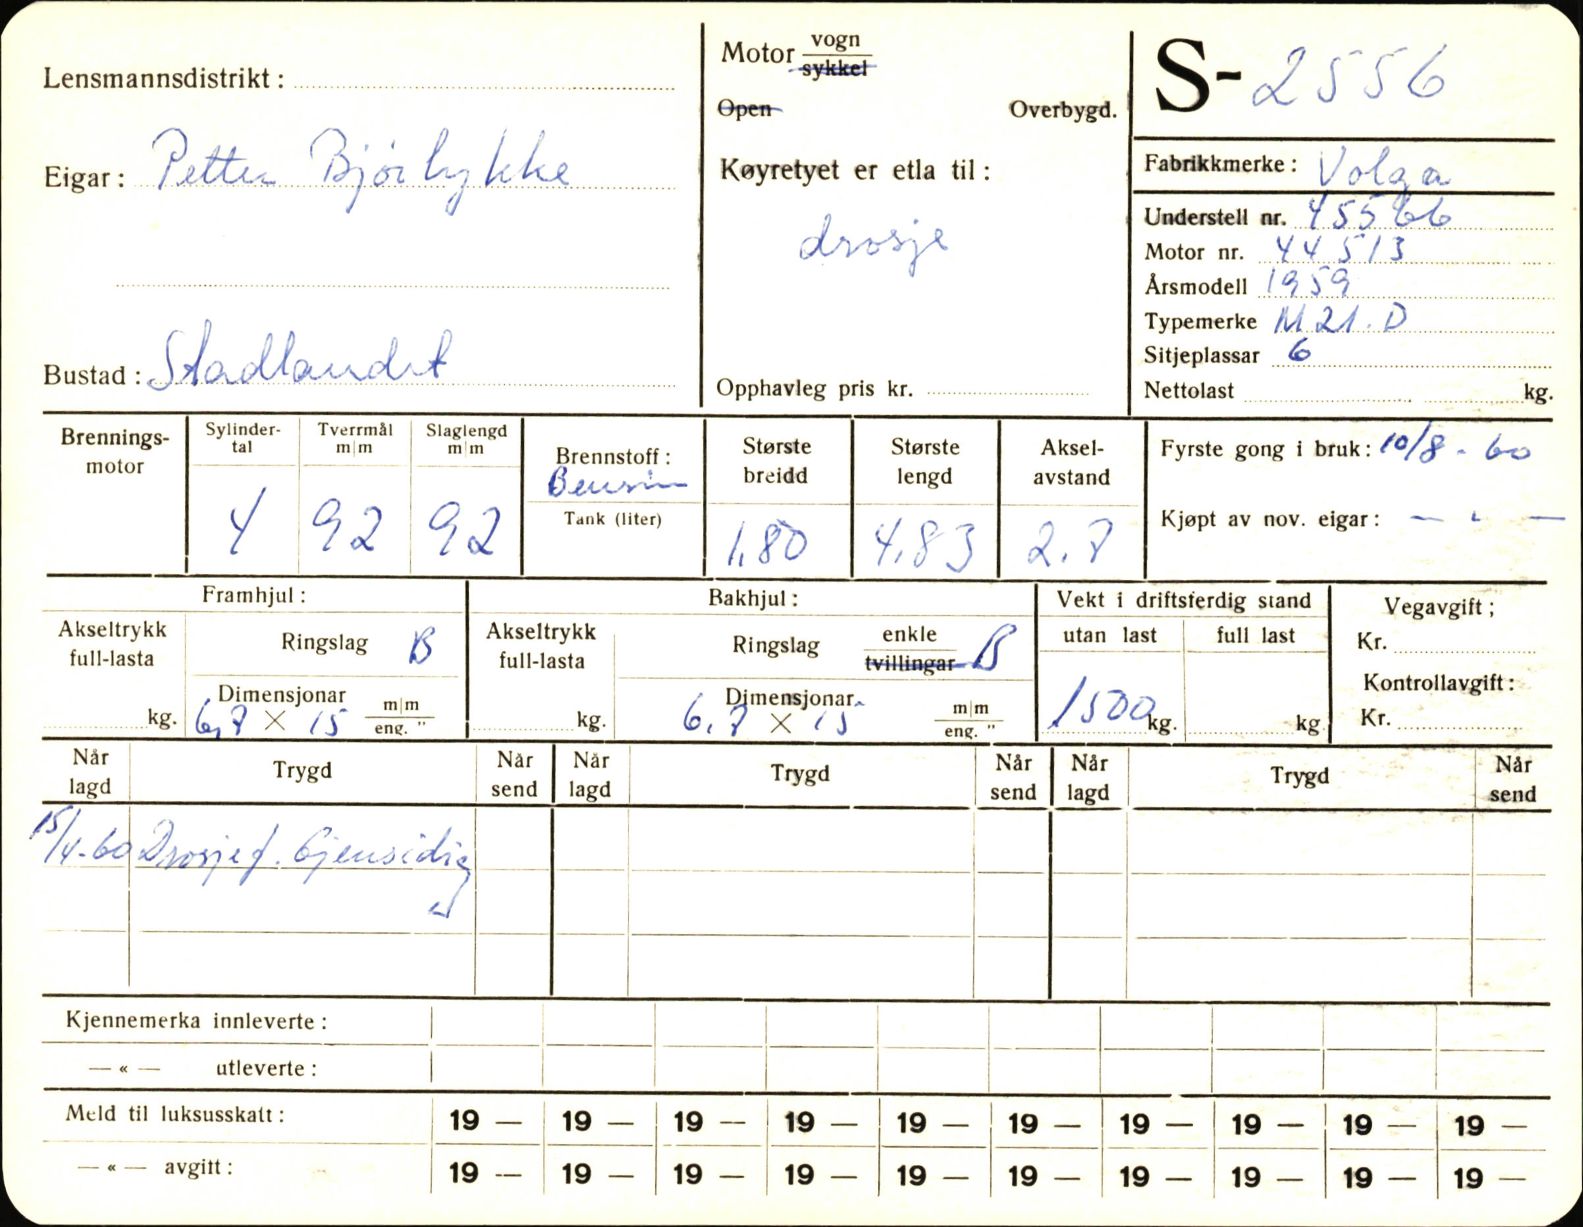 Lensmannsdistrikt :
Eigar : Petter Bjørlykke
Bustad : Stadlandet
Motor vogn
sykkel
Open Overbygd.
Køyretyet er etla til :
drosje
Opphavleg pris kr.
S- 2556
Fabrikkmerke : Volga
Understell nr. 45566
Motor nr. 44513
Årsmodell 1959
Typemerke M 21. D
Sitjeplassar 6
Nettolast kg.
Brennings-
motor
Sylinder-
tal
4
Tverrmål
m|m
92
Slaglengd
m|m
92
Brennstoff :
Bensin
Tank (liter)
Største
breidd
1,80
Største
lengd
4,83
Aksel-
avstand
2.7
Fyrste gong i bruk : 10/8 - 60
Kjøpt av nov. eigar : — " —
Framhjul :
Akseltrykk
full-lasta
kg.
Ringslag B
Dimensjonar
6,7 × 15 m|m
eng. "
Bakhjul :
Akseltrykk
full-lasta
kg.
Ringslag enkle
tvillingar B
Dimensjonar
6,7 × 15 m|m
eng. "
Vekt i driftsferdig stand
utan last full last
1500 kg. kg
Vegavgift ;
Kr.
Kontrollavgift :
Kr.
Når
lagd
Trygd
Når
send
Når
lagd
Trygd
Når
send
Når
lagd
Trygd
Når
send
15/4-60 Drosjef. Gjensidig
Kjennemerka innleverte :
— « — utleverte :
Meld til luksusskatt : 19 — 19 — 19 — 19 — 19 — 19 — 19 — 19 — 19 — 19 —
— « — avgitt : 19 — 19 — 19 — 19 — 19 — 19 — 19 — 19 — 19 — 19 —